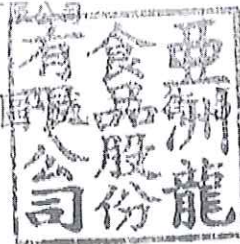 亞洲龍
食品股份
有限公司